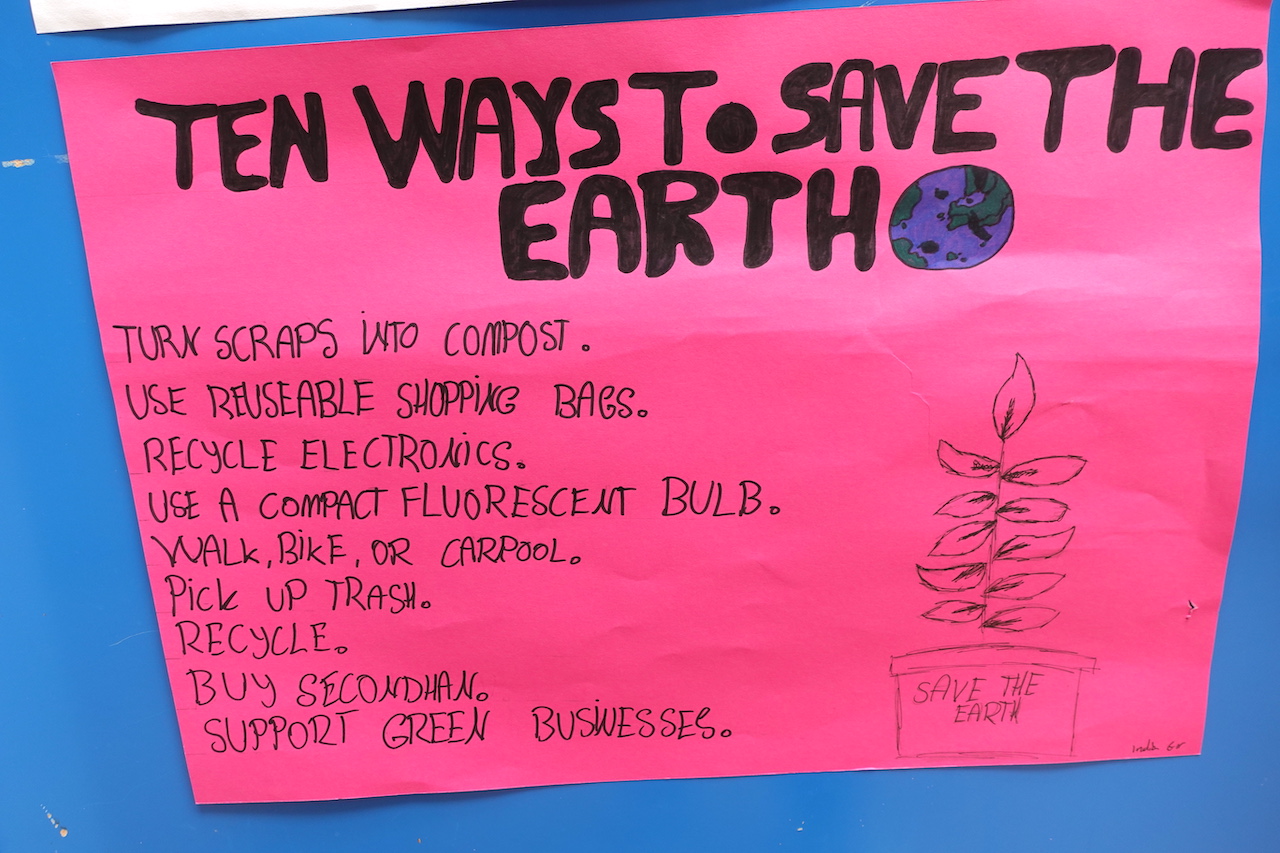 TEN WAYS TO SAVE THE
EARTH
TURN SCRAPS INTO COMPOST.
USE REUSEABLE SHOPPING BAGS.
RECYCLE ELECTRONICS.
USE A COMPACT FLUORESCENT BULB.
WALK, BIKE, OR CARPOOL.
PICK UP TRASH.
RECYCLE.
BUY SECONDHAN.
SUPPORT GREEN BUSINESSES.
SAVE THE
EARTH
India